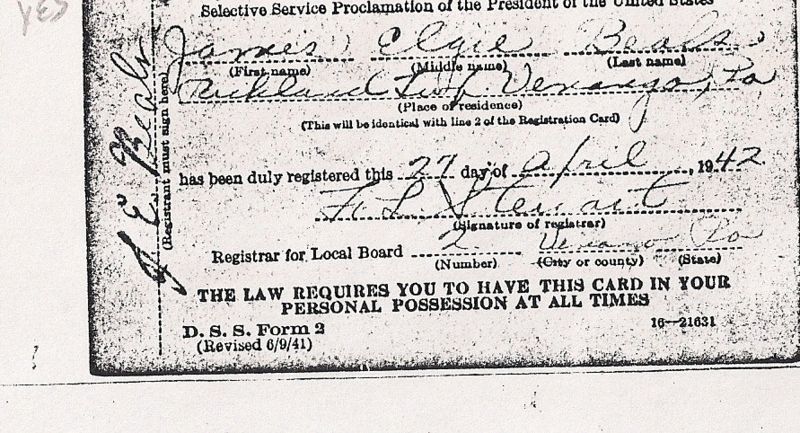 YES
Selective Service Proclamation of the President of the United States
James Elgie Beals
(First name) (Middle name) (Last name)
Richland Twp. Venango, Pa
(Place of residence)
(This will be identical with line 2 of the Registration Card)
has been duly registered this 27 day of April, 1942
F. L. Stewart
(Signature of registrar)
Registrar for Local Board 2 Venango Pa
(Number) (City or county) (State)
THE LAW REQUIRES YOU TO HAVE THIS CARD IN YOUR
PERSONAL POSSESSION AT ALL TIMES
D. S. S. Form 2
(Revised 6/9/41)
16—21631
J. E. Beals
(Registrant must sign here)